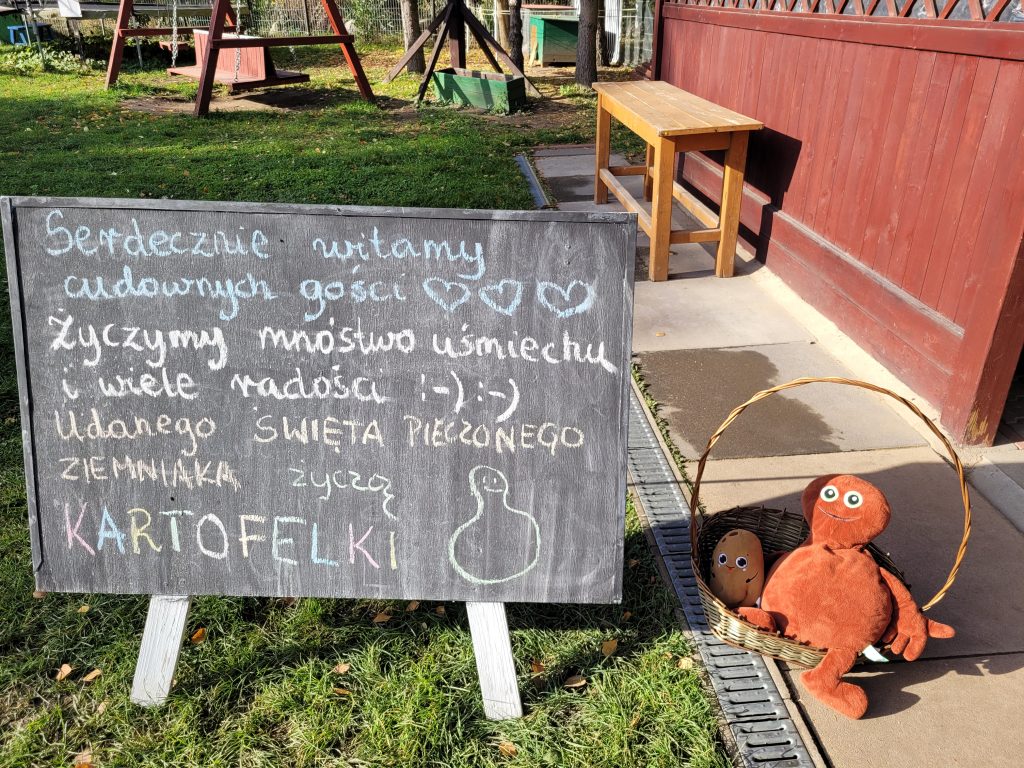 Serdecznie witamy
cudownych gości ♡♡♡
Życzymy mnóstwo uśmiechu
i wiele radości :-) :-)
Udanego ŚWIĘTA PIECZONEGO
ZIEMNIAKA życzą
KARTOFELKI